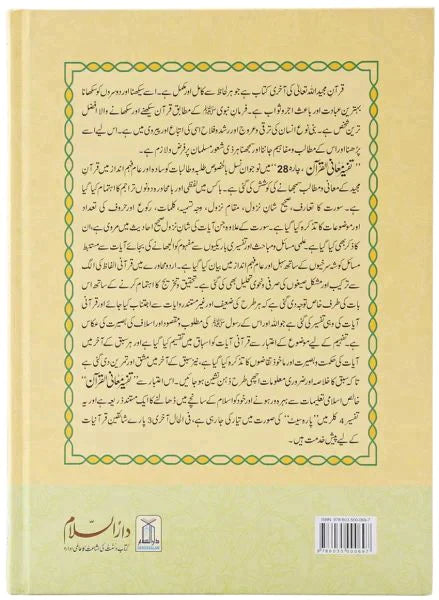 قرآن مجید اللہ تعالیٰ کی آخری کتاب ہے جو ہر لحاظ سے کامل اور مکمل ہے۔ اسے سیکھنا اور دوسروں کو سکھانا
بہترین عبادت اور باعث اجر و ثواب ہے۔ فرمان نبوی ﷺ کے مطابق قرآن سیکھنے اور سکھانے والا افضل
ترین شخص ہے۔ بنی نوع انسان کی ترقی و عروج اور رشد و فلاح اسی کی اتباع اور پیروی میں ہے۔ اس لیے اسے
پڑھنا اور اس کے مطالب و مفاہیم جاننا اور سمجھنا ہر ذی شعور مسلمان پر فرض و لازم ہے۔
"تفہیم معانی القرآن، پارہ 28" میں نوجوان نسل بالخصوص طلبہ و طالبات کو سادہ اور عام فہم انداز میں قرآن
مجید کے معانی و مطالب سمجھانے کی کوشش کی گئی ہے۔ جس میں لفظی اور بامحاورہ دونوں تراجم کا اہتمام کیا گیا
ہے۔ سورت کا تعارف، صحیح شان نزول، مقام نزول، وجہ تسمیہ، کلمات، رکوع اور حروف کی تعداد
اور موضوعات کا تذکرہ کیا گیا ہے۔ سورت کے علاوہ جن آیات کی شان نزول صحیح احادیث میں مروی ہے، ان
کا ذکر بھی کیا گیا ہے۔ علمی مسائل و مباحث اور تفسیری باریکیوں سے مفہوم کو الجھانے کی بجائے آیات سے مستنبط
مسائل کو شذ سرخیوں کے ساتھ سہل اور عام فہم انداز میں بیان کیا گیا ہے۔ اردو محاورے میں قرآنی الفاظ کی الگ
سے ترکیب اور مشکل صیغوں کی صرفی و نحوی تحلیل بھی کی گئی ہے۔ تحقیق و تخریج کا اہتمام کرنے کے ساتھ اس
بات کی طرف خاص توجہ دی گئی ہے کہ ہر طرح کی ضعیف اور غیر مستند روایات سے اجتناب کیا جائے اور قرآنی
آیات کی وہی تفسیر کی گئی ہے جو اللہ اور اس کے رسول ﷺ کی مطلوب و مقصود اور اسلاف کی بصیرت کی عکاس
ہے۔ تفہیم کے لیے موضوع کے اعتبار سے قرآنی آیات کو اسباق میں تقسیم کیا گیا ہے اور ہر سبق کے آخر میں
آیات کی حکمت و بصیرت اور ماخوذ تقاضوں کا تذکرہ کیا گیا ہے، نیز سبق کے آخر میں مشق اور تمرین دی گئی ہے
تاکہ سبق کا خلاصہ اور ضروری معلومات اچھی طرح ذہن نشین ہو جائیں۔ اس اعتبار سے "تفہیم معانی القرآن"
خالص اسلامی تعلیمات سے بہرہ ور ہونے اور خود کو اسلام کے سانچے میں ڈھالنے کا ایک مستند ذریعہ ہے اور یہ
تفسیر 4 کلر میں "پارہ سیٹ" کی صورت میں تیار کی جا رہی ہے، فی الحال آخری 3 پارے شائقین قرآنیات
کے لیے پیش خدمت ہیں۔
دارالسلام
کتاب و سنت کی اشاعت کا عالمی ادارہ
DARUSSALAM
ISBN: 978-603-500-069-7